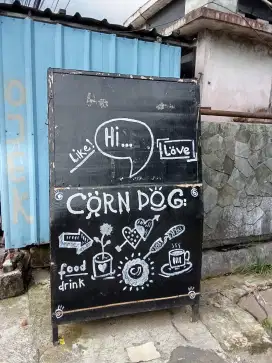 Hi...
Like!
Löve
CÖRN DOG:
food
drink
OJEK